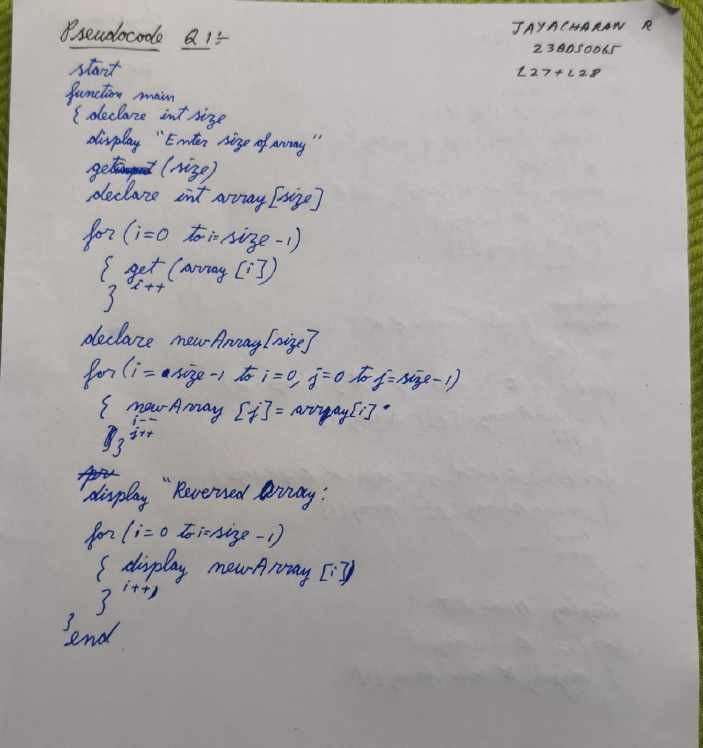 Pseudocode Q1:-
JAYACHARAN R
23BDS0065
L27+L28
start
function main
{ declare int size
display "Enter size of array"
get (size)
declare int array[size]
for (i=0 to i=size-1)
{ get (array [i])
i++
}
declare newArray[size]
for (i=size-1 to i=0, j=0 to j=size-1)
{ newArray [j] = array[i]
i--
j++
}
display "Reversed Array:
for (i=0 to i=size-1)
{ display newArray [i]
i++
}
}
end